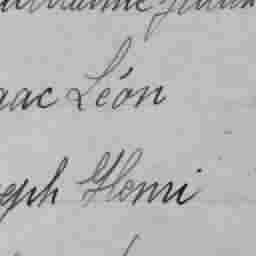 aac Léon
eph Henri